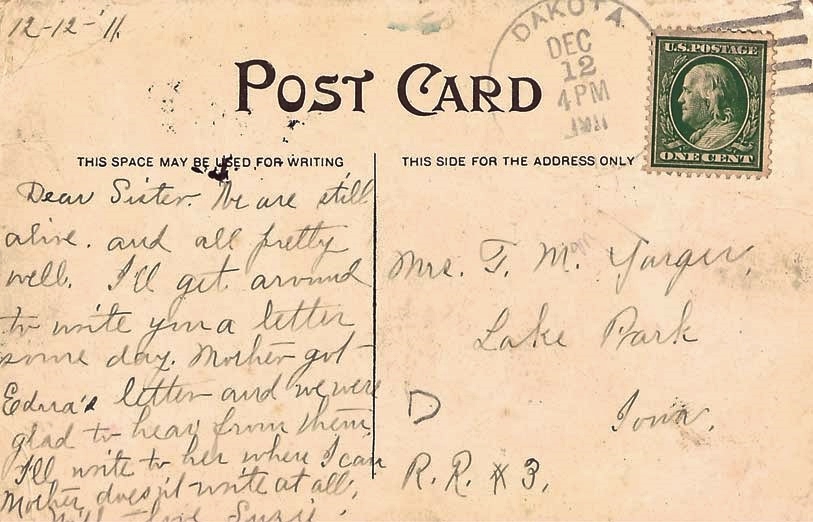 12-12-'11.
DAKOTA
DEC
12
4 PM
1911
U.S. POSTAGE
ONE CENT
POST CARD
THIS SPACE MAY BE USED FOR WRITING
THIS SIDE FOR THE ADDRESS ONLY
Dear Sister. We are still
alive. and all pretty
well. I'll get around
to write you a letter
some day. Mother got
Edna's letter and we were
glad to hear from them
I'll write to her when I can
Mother doesn't write at all.
Will Love Suzie.
Mrs. T. M. Yarger,
Lake Park
D Iowa.
R. R. # 3.